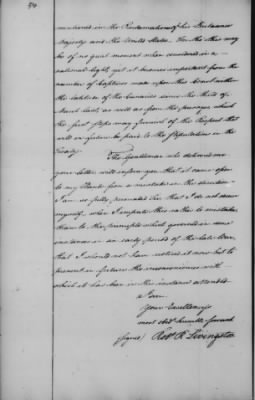 34
mentioned in the Proclamations of his Britannic
Majesty and the United States. Tho this may
be of no great moment when considered in a
national light, yet it becomes important from the
number of Captures made upon the Coast within
the latitude of the Canaries since the third of
March last, as well as from the passage which
the first steps may furnish of the Respect that
will in future be paid to the Stipulations in the
Treaty.
The Gentleman who delivered me
your Letter will inform you that it came open
to my Hands from a mistake in the direction
I am so fully persuaded Sir that I do not deceive
myself, when I impute this rather to mistake
than to the principle which governed in some
instances in an early period of the late War,
that I should not have noticed it now but to
prevent in future the inconveniences with
which it has been in this instance attended
I am
Your Excellency's
most obedt humble servant
(signed) Robt R Livingston